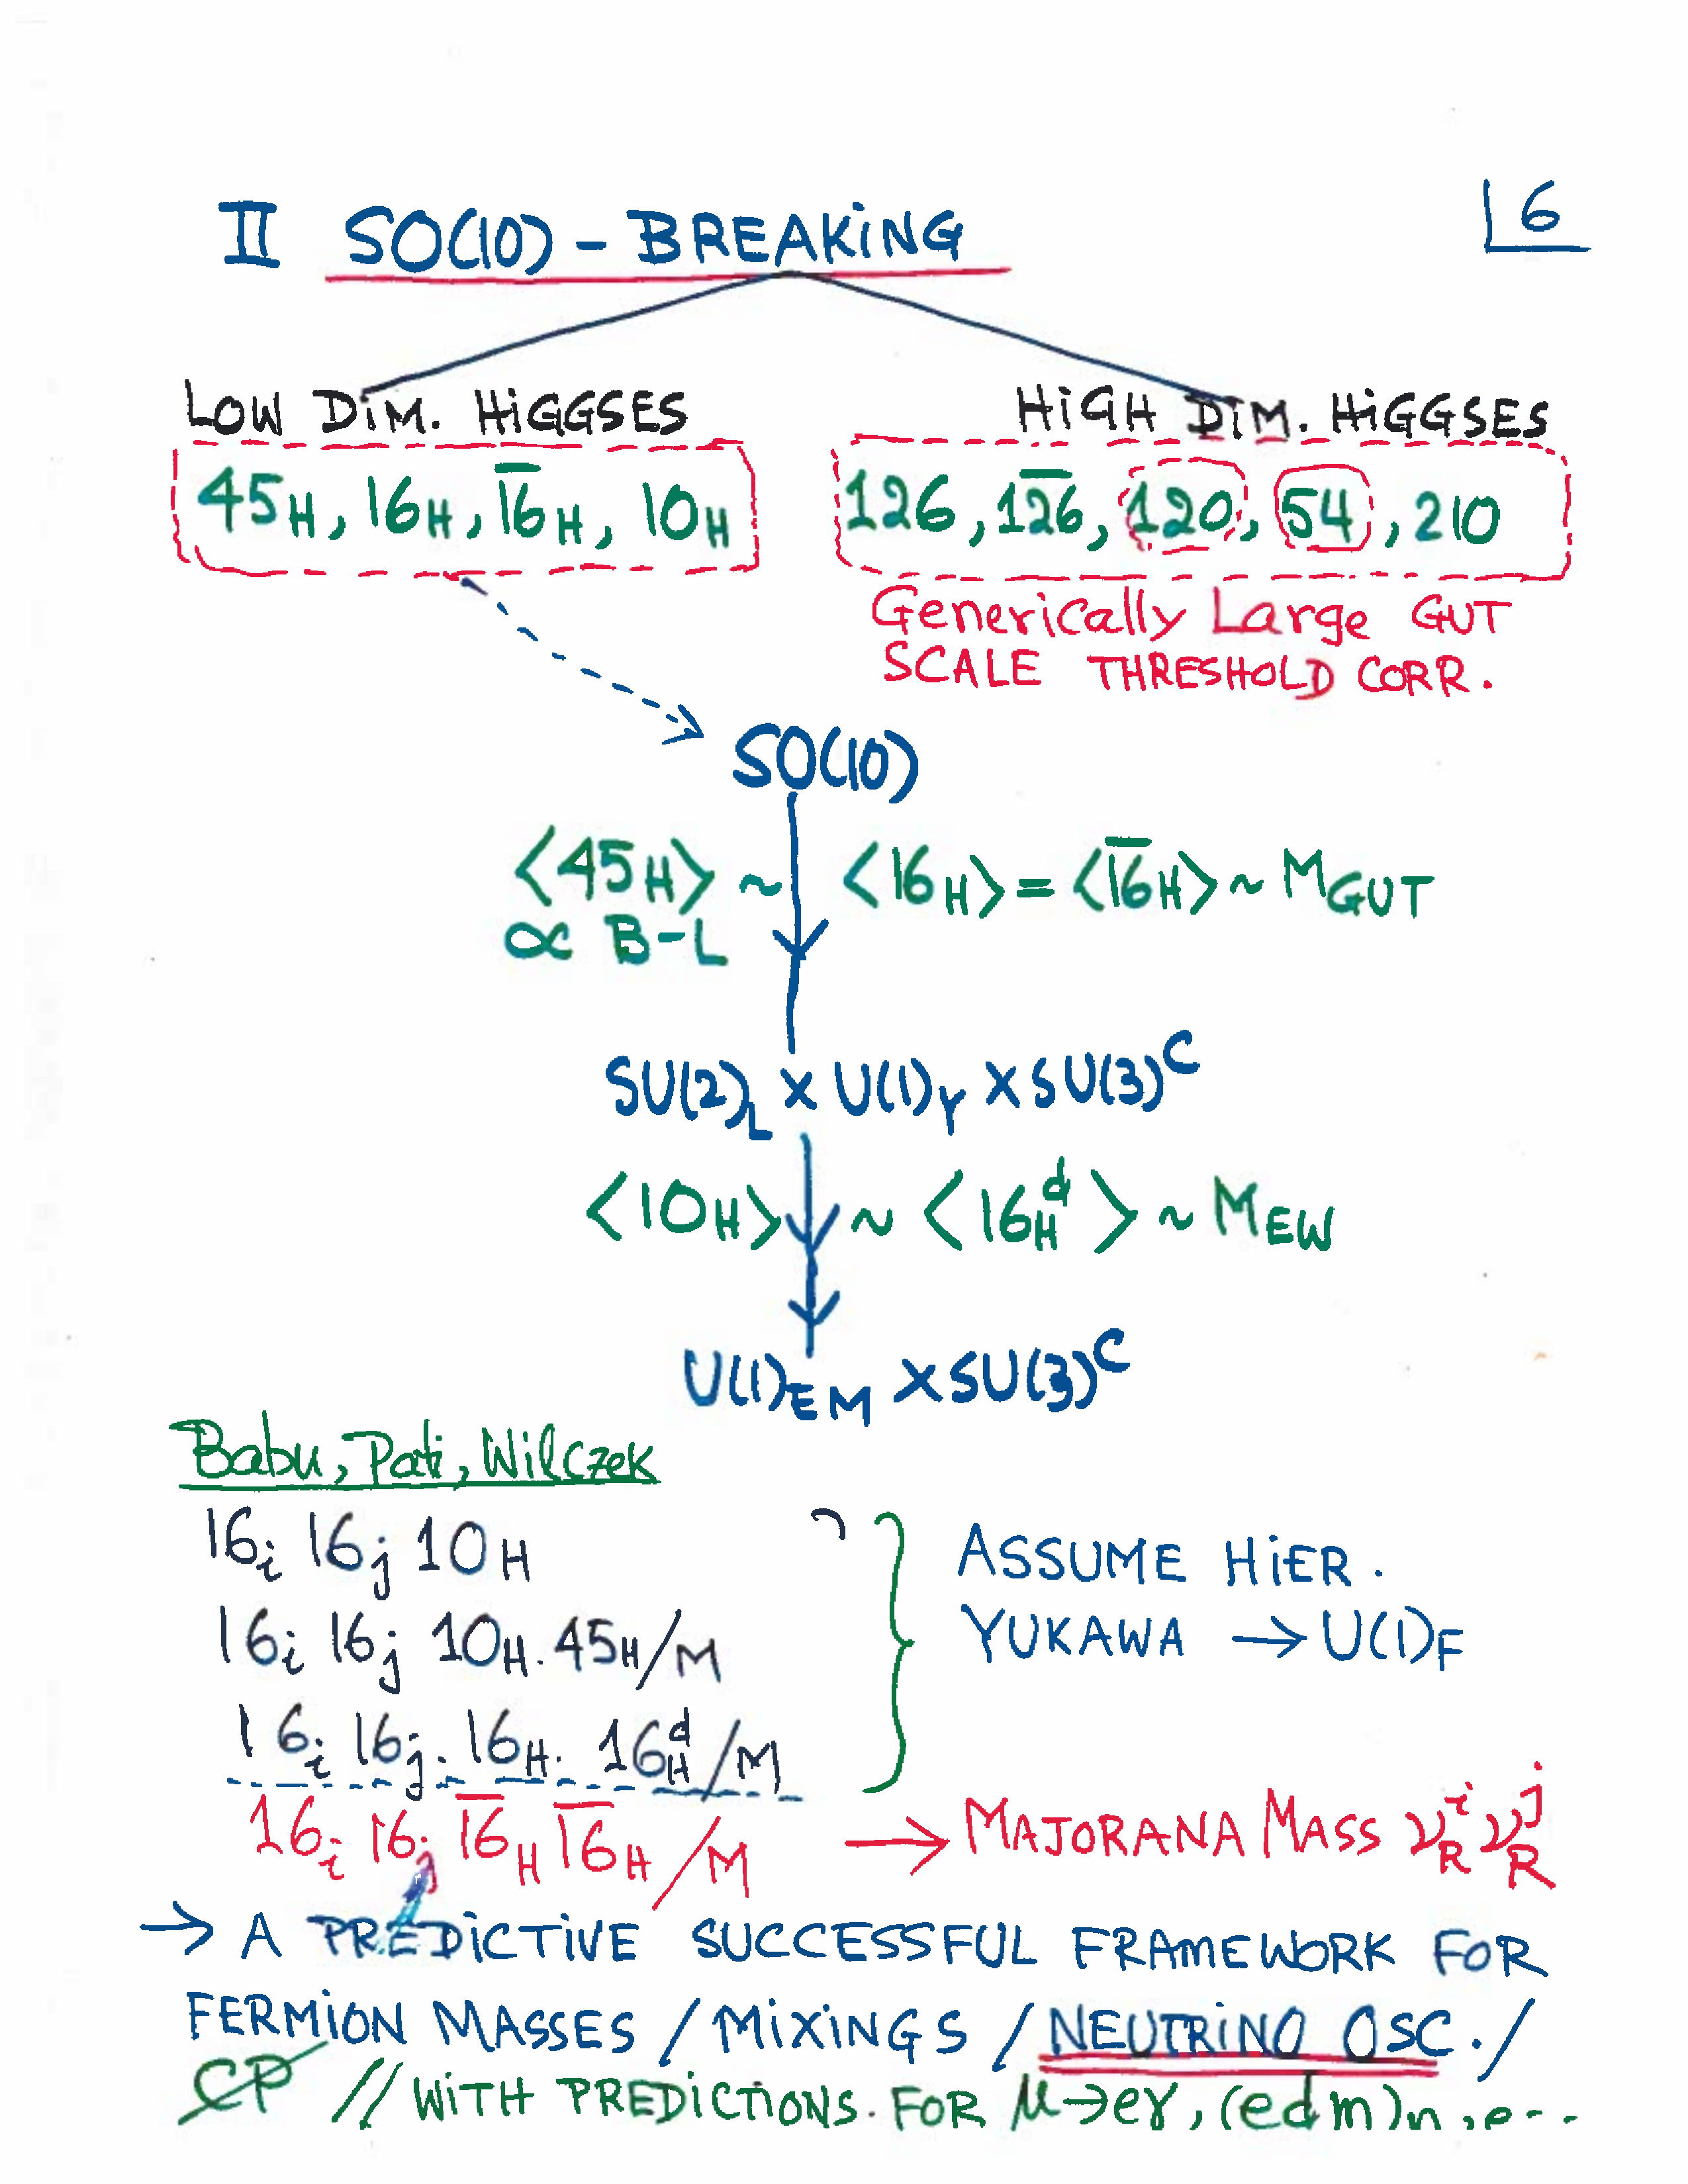 II SO(10) - BREAKING
6
LOW DIM. HIGGSES
45_H, 16_H, \overline{16}_H, 10_H
HIGH DIM. HIGGSES
126, \overline{126}, 120, 54, 210
Generically Large GUT
SCALE THRESHOLD CORR.
SO(10)
<45_H> ~ <16_H> = <\overline{16}_H> ~ M_GUT
∝ B-L
SU(2)_L × U(1)_Y × SU(3)^C
<10_H> ~ <16_H^d> ~ M_EW
U(1)_EM × SU(3)^C
Babu, Pati, Wilczek
16_i 16_j 10_H
16_i 16_j 10_H . 45_H/M
16_i 16_j . 16_H . 16_H^d/M
ASSUME HIER.
YUKAWA → U(1)_F
16_i 16_j \overline{16}_H \overline{16}_H/M → MAJORANA MASS ν_R^i ν_R^j
→ A PREDICTIVE SUCCESSFUL FRAMEWORK FOR
FERMION MASSES / MIXINGS / NEUTRINO OSC. /
CP // WITH PREDICTIONS. FOR μ→eγ, (edm)n,e...